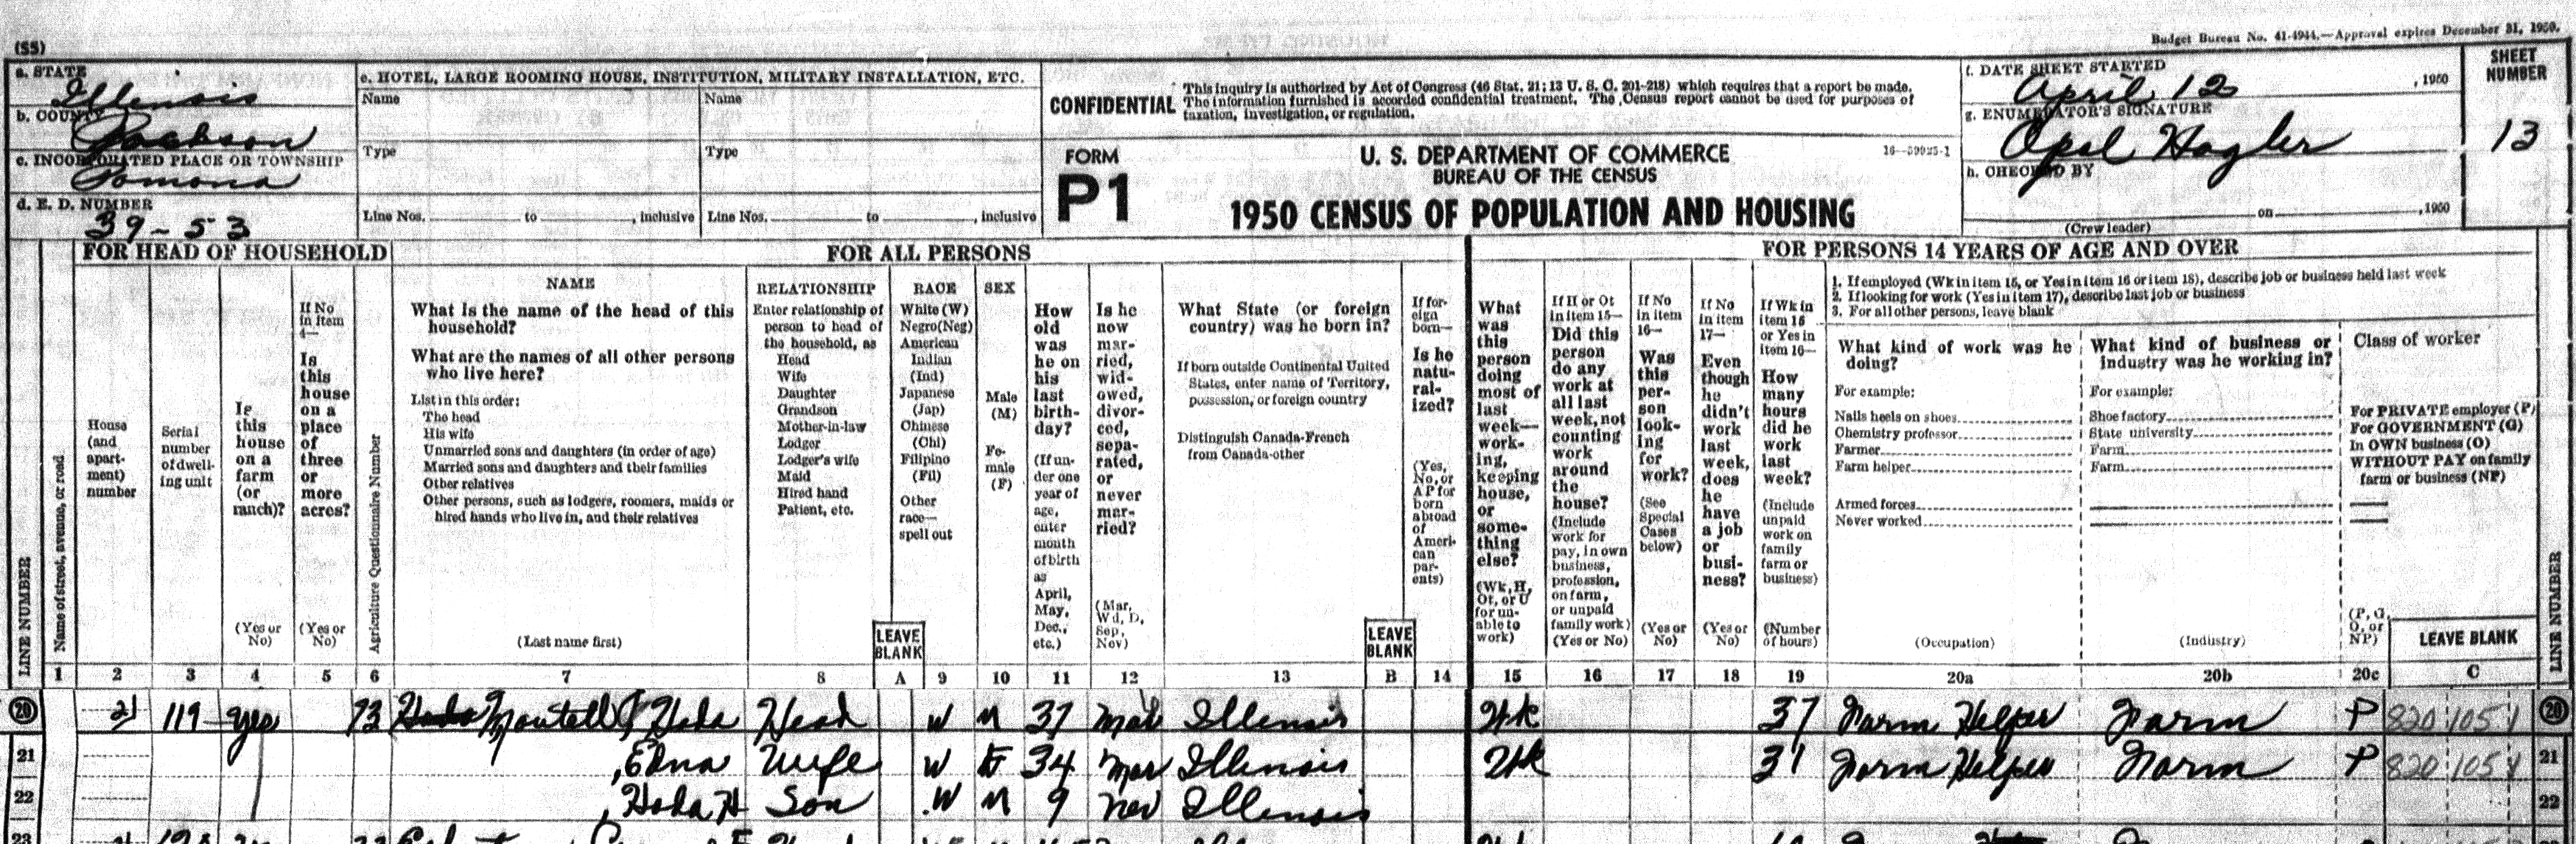 Budget Bureau No. 41-4944.—Approval expires December 31, 1950.
(SS)
a. STATE
Illinois
b. COUNTY
Jackson
c. INCORPORATED PLACE OR TOWNSHIP
Pomona
d. E. D. NUMBER
39-53
e. HOTEL, LARGE ROOMING HOUSE, INSTITUTION, MILITARY INSTALLATION, ETC.
Name Name
Type Type
Line Nos. to , inclusive Line Nos. to , inclusive
CONFIDENTIAL
This inquiry is authorized by Act of Congress (46 Stat. 21; 13 U. S. C. 201-218) which requires that a report be made.
The information furnished is accorded confidential treatment. The Census report cannot be used for purposes of
taxation, investigation, or regulation.
FORM
P1
U. S. DEPARTMENT OF COMMERCE
BUREAU OF THE CENSUS
1950 CENSUS OF POPULATION AND HOUSING
f. DATE SHEET STARTED
April 12 , 1950
g. ENUMERATOR'S SIGNATURE
Opal Hagler
h. CHECKED BY
on , 1950
(Crew leader)
SHEET
NUMBER
13
FOR HEAD OF HOUSEHOLD
FOR ALL PERSONS
FOR PERSONS 14 YEARS OF AGE AND OVER
LINE NUMBER
Name of street, avenue, or road
House
(and
apart-
ment)
number
Serial
number
of dwell-
ing unit
Is
this
house
on a
farm
(or
ranch)?
(Yes or
No)
If No
in item
4—
Is
this
house
on a
place
of
three
or
more
acres?
(Yes or
No)
Agriculture Questionnaire Number
NAME
What is the name of the head of this
household?
What are the names of all other persons
who live here?
List in this order:
The head
His wife
Unmarried sons and daughters (in order of age)
Married sons and daughters and their families
Other relatives
Other persons, such as lodgers, roomers, maids or
hired hands who live in, and their relatives
(Last name first)
RELATIONSHIP
Enter relationship of
person to head of
the household, as
Head
Wife
Daughter
Grandson
Mother-in-law
Lodger
Lodger's wife
Maid
Hired hand
Patient, etc.
LEAVE
BLANK
RACE
White (W)
Negro (Neg)
American
Indian
(Ind)
Japanese
(Jap)
Chinese
(Chi)
Filipino
(Fil)
Other
race—
spell out
SEX
Male
(M)
Fe-
male
(F)
How
old
was
he on
his
last
birth-
day?
(If un-
der one
year of
age,
enter
month
of birth
as
April,
May,
Dec.,
etc.)
Is he
now
mar-
ried,
wid-
owed,
divor-
ced,
sepa-
rated,
or
never
mar-
ried?
(Mar,
Wd, D,
Sep,
Nev)
What State (or foreign
country) was he born in?
If born outside Continental United
States, enter name of Territory,
possession, or foreign country
Distinguish Canada-French
from Canada-other
LEAVE
BLANK
If for-
eign
born—
Is he
natu-
ral-
ized?
(Yes,
No, or
AP for
born
abroad
of
Ameri-
can
par-
ents)
What
was
this
person
doing
most of
last
week—
work-
ing,
keeping
house,
or
some-
thing
else?
(Wk, H,
Ot, or U
for un-
able to
work)
If H or Ot
in item 15—
Did this
person
do any
work at
all last
week, not
counting
work
around
the
house?
(Include
work for
pay, in own
business,
profession,
on farm,
or unpaid
family work)
(Yes or No)
If No
in item
16—
Was
this
per-
son
look-
ing
for
work?
(See
Special
Cases
below)
(Yes or
No)
If No
in item
17—
Even
though
he
didn't
work
last
week,
does
he
have
a job
or
busi-
ness?
(Yes or
No)
If Wk in
item 15
or Yes in
item 16—
How
many
hours
did he
work
last
week?
(Include
unpaid
work on
family
farm or
business)
(Number
of hours)
1. If employed (Wk in item 15, or Yes in item 16 or item 18), describe job or business held last week
2. If looking for work (Yes in item 17), describe last job or business
3. For all other persons, leave blank
What kind of work was he
doing?
For example:
Nails heels on shoes
Chemistry professor
Farmer
Farm helper
Armed forces
Never worked
(Occupation)
What kind of business or
industry was he working in?
For example:
Shoe factory
State university
Farm
Farm
(Industry)
Class of worker
For PRIVATE employer (P)
For GOVERNMENT (G)
In OWN business (O)
WITHOUT PAY on family
farm or business (NP)
(P, G,
O, or
NP)
LEAVE BLANK
LINE NUMBER
1 2 3 4 5 6 7 8 A 9 10 11 12 13 B 14 15 16 17 18 19 20a 20b 20c C
20 21 119 yes 73 Hoda Head W M 37 Mar Illinois Wk 37 Farm Helper Farm P 820 105 1 20
21 , Edna Wife W F 34 Mar Illinois Wk 31 Farm Helper Farm P 820 105 1 21
22 , Hoda H Son W M 9 Nev Illinois 22
23